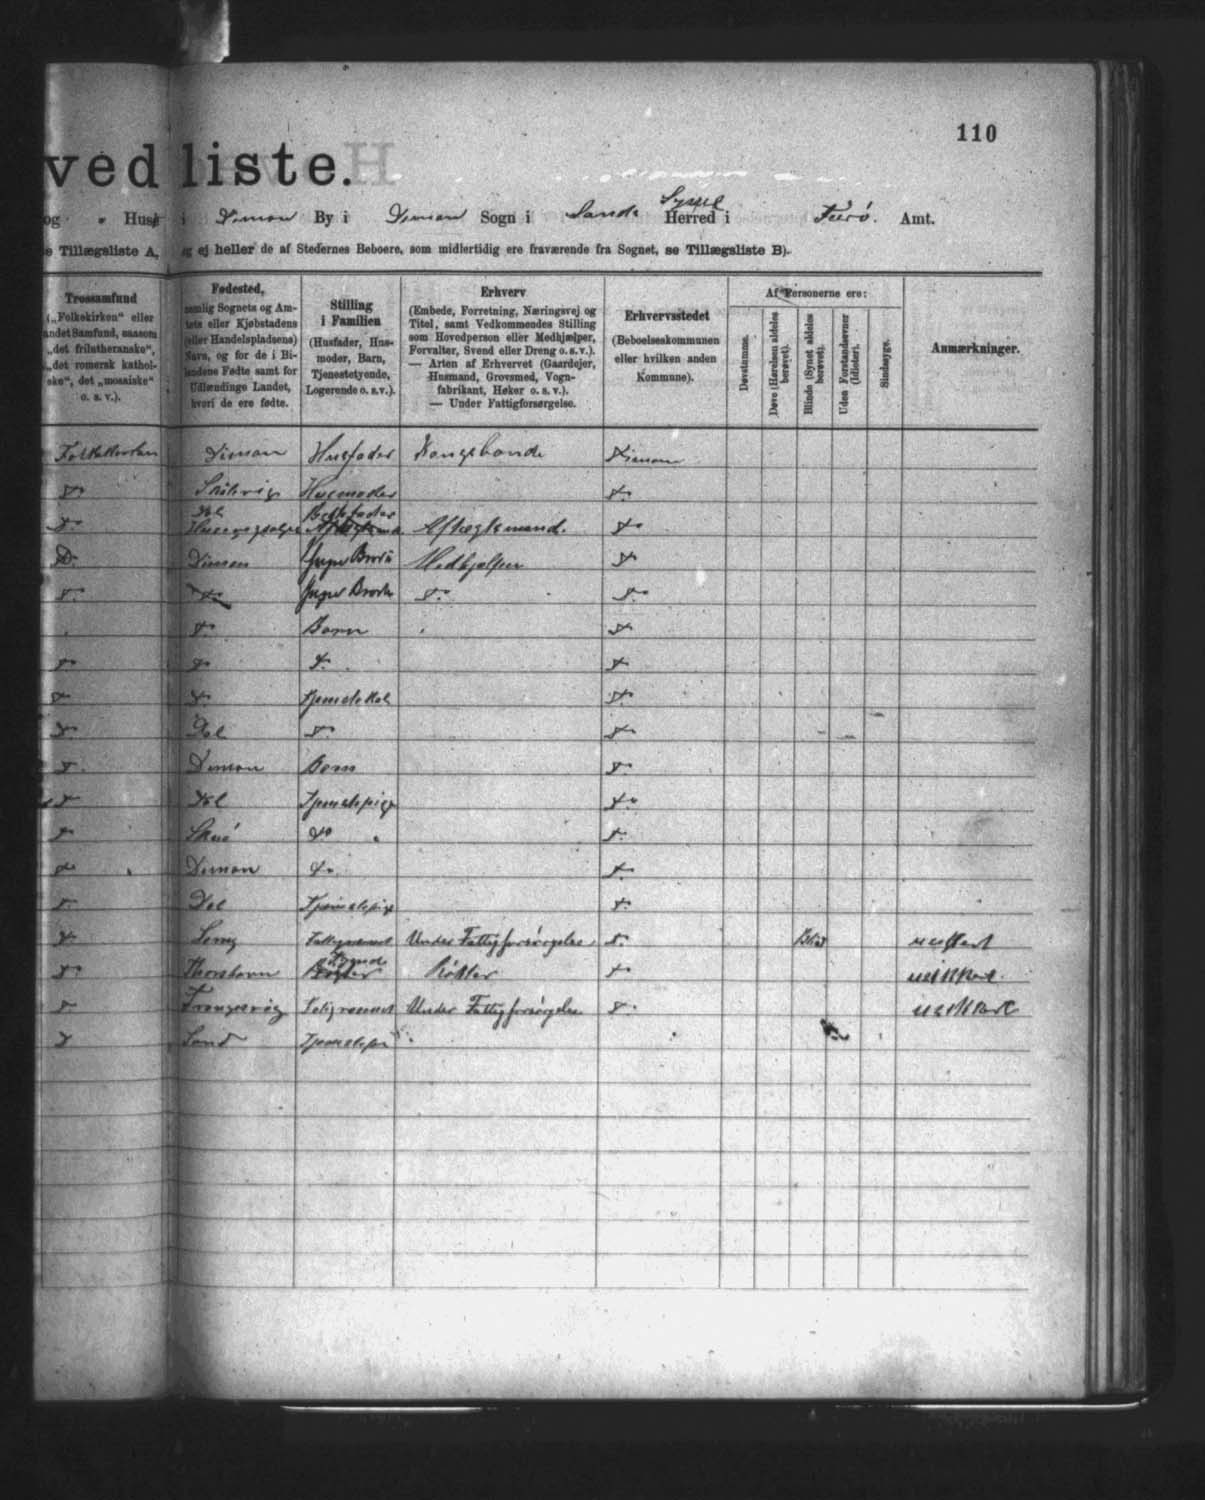 110
vedliste.
og " Huse i Dimon By i Dimon Sogn i Sandø Syssel Herred i Færø. Amt.
e Tillægsliste A, og ej heller de af Stedernes Beboere, som midlertidig ere fraværende fra Sognet, se Tillægsliste B).
Trossamfund
(„Folkekirken“ eller
andet Samfund, saasom
„det frilutheranske“,
„det romersk kathol-
ske“, det „mosaiske“
o. s. v.).
Fødested,
nemlig Sognets og Am-
tets eller Kjøbstadens
(eller Handelspladsens)
Navn, og for de i Bi-
landene Fødte samt for
Udlændinge Landet,
hvori de ere fødte.
Stilling
i Familien
(Husfader, Hus-
moder, Barn,
Tjenestetyende,
Logerende o. s. v.).
Erhverv
(Embede, Forretning, Næringsvej og
Titel, samt Vedkommendes Stilling
som Hovedperson eller Medhjælper,
Forvalter, Svend eller Dreng o. s. v.).
— Arten af Erhvervet (Gaardejer,
Husmand, Grovsmed, Vogn-
fabrikant, Høker o. s. v.).
— Under Fattigforsørgelse.
Erhvervsstedet
(Beboelseskommunen
eller hvilken anden
Kommune).
Af Personerne ere:
Døvstumme.
Døve (Hørelsen aldeles
berøvet).
Blinde (Synet aldeles
berøvet).
Uden Forstandsevner
(Idioter).
Sindssyge.
Anmærkninger.
Folkekirken Dimon Husfader Kongsbonde Dimon
Do Skålevig Husmoder Do
Dal Bedstefader
Do Husevig Aftægtsmand. Do
Do. Dimon Medhjælper Do
Do. Do Do Do
Do Barn Do
Do Do Do. Do
Do Do Tjenestekal Do
Do Dal Do Do
Do. Dimon Barn Do
Do Dal Tjenestepige Do
Do Skuø Do Do
Do Dimon Do. Do
Do Dal Tjenestepige Do
Do Under Fattigforsørgelse Do. Blind
Do Thorshavn Do
Do Trangisvåg Under Fattigforsørgelse Do
Do Sand Tjenestepi